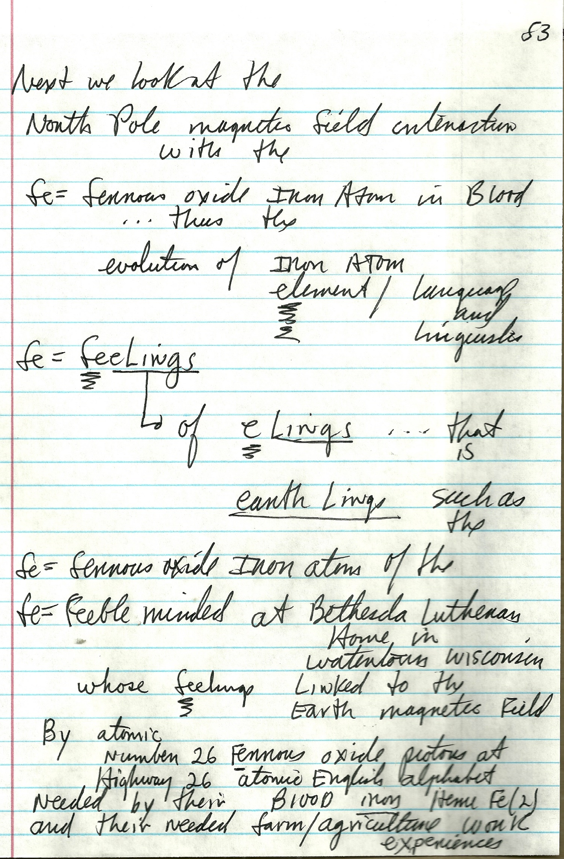 83
Next we look at the
North Pole magnetic field interaction
with the
fe = ferrous oxide Iron Atom in Blood
... thus the
evolution of Iron Atom
element / language
and
linguistic
fe = feeLings
of eLings ... that
is
earth Lings such as
the
fe = ferrous oxide Iron atoms of the
fe = Feeble minded at Bethesda Lutheran
Home in
Watertown Wisconsin
whose feelings Linked to the
Earth magnetic Field
By atomic
Number 26 Ferrous oxide protons at
Highway 26 atomic English alphabet
needed by their Blood iron Heme Fe(2)
and their needed farm/agriculture work
experiences